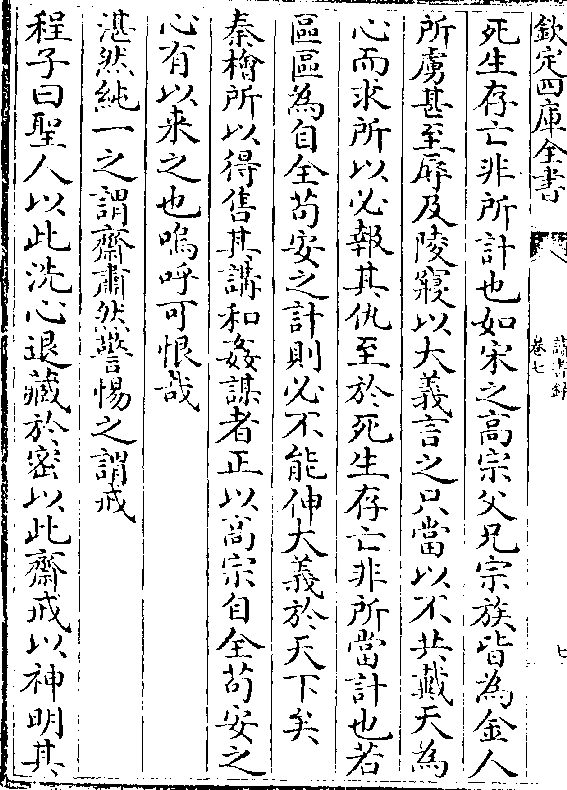 欽定四庫全書
讀書錄
卷七
七
死生存亡非所計也如宋之高宗父兄宗族皆為金人
所虜甚至辱及陵寢以大義言之只當以不共戴天為
心而求所以必報其仇至於死生存亡非所當計也若
區區為自全苟安之計則必不能伸大義於天下矣
秦檜所以得售其講和姦謀者正以高宗自全苟安之
心有以来之也嗚呼可恨哉
湛然純一之謂齋肅然警惕之謂戒
程子曰聖人以此洗心退藏於密以此齋戒以神明其